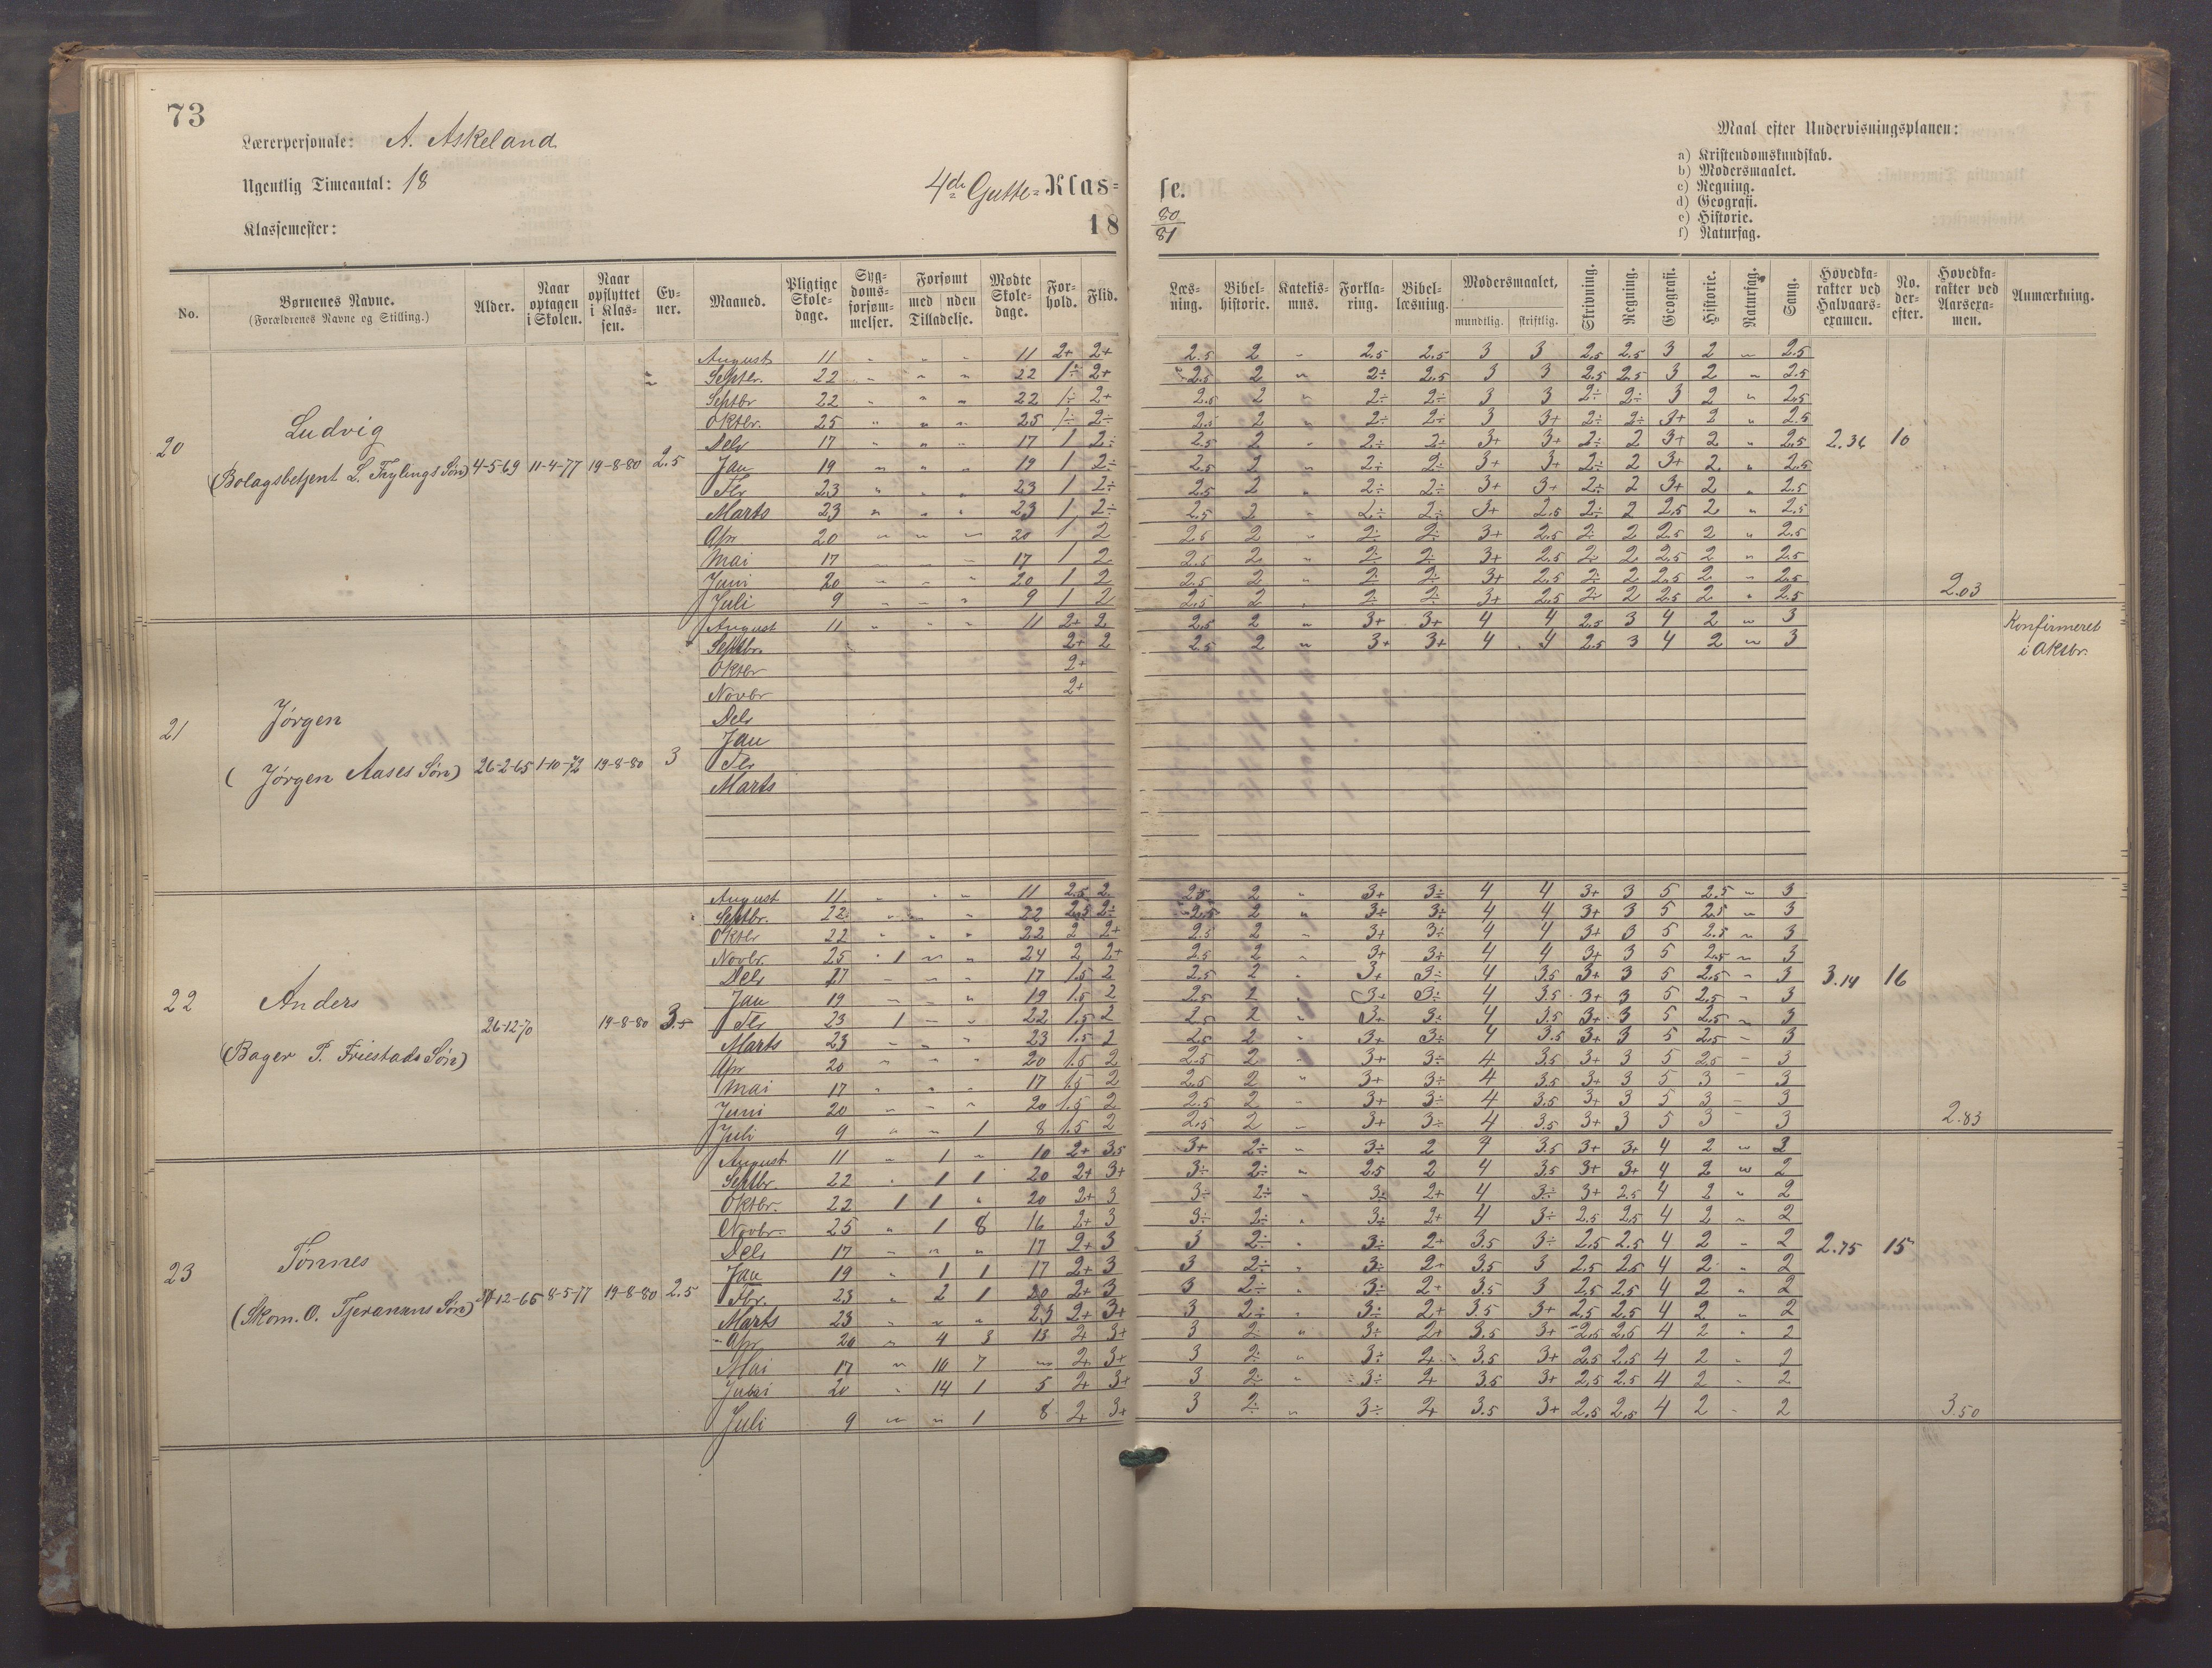 73
Lærerpersonale: A. Askeland
Ugentlig Timeantal: 18
Klassemester:
4de Gutte- Klas-
18
se.
80
81
Maal efter Undervisningsplanen:
a) Kristendomskundskab.
b) Modersmaalet.
c) Regning.
d) Geografi.
e) Historie.
f) Naturfag.
No. Børnenes Navne. (Forældrenes Navne og Stilling.) Alder. Naar optagen i Skolen. Naar opflyttet i Klassen. Evner. Maaned. Pligtige Skoledage. Sygdomsforsømmelser. Forsømt med uden Tilladelse. Mødte Skoledage. Forhold. Flid. Læsning. Bibelhistorie. Katekismus. Forklaring. Bibellæsning. Modersmaalet, mundtlig. skriftlig. Skrivning. Regning. Geografi. Historie. Naturfag. Sang. Hovedkarakter ved Halvaarsexamen. No. derefter. Hovedkarakter ved Aarsexamen. Anmærkning.
20 Ludvig
4-5-69 11-4-77 19-8-80 2.5
August 11 " " " 11 2+ 2+ 2.5 2 " 2.5 2.5 3 3 2.5 2.5 3 2 " 2.5
Septbr. 22 " " " 22 1÷ 2+ 2.5 2 " 2÷ 2.5 3 3 2.5 2.5 3 2 " 2.5
Septbr 22 " " " 22 1÷ 2+ 2.5 2 " 2÷ 2÷ 3 3 2÷ 2÷ 3 2 " 2.5
Oktbr. 25 " " " 25 1÷ 2÷ 2.5 2 " 2÷ 2÷ 3 3+ 2÷ 2÷ 3+ 2 " 2.5
Debr 17 " " " 17 1 2÷ 2.5 2 " 2÷ 2÷ 3+ 3+ 2÷ 2 3+ 2 " 2.5 2.36 10
Jan 19 " " " 19 1 2÷ 2.5 2 " 2÷ 2÷ 3+ 3+ 2÷ 2 3+ 2 " 2.5
Fbr 23 " " " 23 1 2÷ 2.5 2 " 2÷ 2÷ 3+ 3+ 2÷ 2 3+ 2 " 2.5
Marts 23 " " " 23 1 2÷ 2.5 2 " 2÷ 2÷ 3+ 2.5 2÷ 2 2.5 2 " 2.5
Apr 20 " " " 20 1 2 2.5 2 " 2÷ 2÷ 3+ 2.5 2÷ 2 2.5 2 " 2.5
Mai 17 " " " 17 1 2 2.5 2 " 2÷ 2÷ 3+ 2.5 2÷ 2 2.5 2 " 2.5
Juni 20 " " " 20 1 2 2.5 2 " 2÷ 2÷ 3+ 2.5 2÷ 2 2.5 2 " 2.5
Juli 9 " " " 9 1 2 2.5 2 " 2÷ 2÷ 3+ 2.5 2÷ 2 2.5 2 " 2.5 2.03
21 Jørgen
(Jørgen Aases Søn) 26-2-65 1-10-72 19-8-80 3
August 11 " " " 11 2+ 2 2.5 2 " 3+ 3+ 4 4 2.5 3 4 2 " 3 Konfirmeret
Septbr. 2+ 2 2.5 2 " 3+ 3+ 4 4 2.5 3 4 2 " 3 i Oktbr.
Oktbr 2+
Novbr 2+
Debr
Jan
Fbr
Marts
22 Anders
(Bager P. Friestads Søn) 26-12-70 19-8-80 3.5
August 11 " " " 11 2.5 2 2.5 2 " 3+ 3÷ 4 4 3+ 3 5 2.5 " 3
Septbr. 22 " " " 22 2.5 2÷ 2.5 2 " 3÷ 3÷ 4 4 3+ 3 5 2.5 " 3
Oktbr 22 " " " 22 2 2+ 2.5 2 " 3+ 3÷ 4 4 3+ 3 5 2.5 " 3
Novbr. 25 1 " " 24 2 2+ 2.5 2 " 3+ 3÷ 4 4 3+ 3 5 2.5 " 3
Debr 17 " " " 17 1.5 2 2.5 2 " 3+ 3÷ 4 3.5 3+ 3 5 2.5 " 3 3.14 16
Jan 19 " " " 19 1.5 2 2.5 2 " 3+ 3÷ 4 3.5 3+ 3 5 2.5 " 3
Fbr 23 1 " " 22 1.5 2 2.5 2 " 3+ 3÷ 4 3.5 3+ 3 5 2.5 " 3
Marts 23 " " " 23 1.5 2 2.5 2 " 3+ 3÷ 4 3.5 3+ 3 5 2.5 " 3
Apr 20 " " " 20 1.5 2 2.5 2 " 3+ 3÷ 4 3.5 3+ 3 5 2.5 " 3
Mai 17 " " " 17 1.5 2 2.5 2 " 3+ 3÷ 4 3.5 3+ 3 5 3 " 3
Juni 20 " " " 20 1.5 2 2.5 2 " 3+ 3÷ 4 3.5 3+ 3 5 3 " 3
Juli 9 " " 1 8 1.5 2 2.5 2 " 3+ 3÷ 4 3.5 3+ 3 5 3 " 3 2.83
23 Tønnes
12-65 8-5-77 19-8-80 2.5
August 11 " 1 " 10 2+ 3.5 3+ 2÷ " 3÷ 2 4 3.5 3+ 3+ 4 2 " 3
Septbr. 22 " 1 1 20 2+ 3+ 3÷ 2÷ " 2.5 2 4 3.5 3+ 3+ 4 2 " 2
Oktbr. 22 1 1 " 20 2+ 3 3÷ 2÷ " 3÷ 2+ 4 3÷ 3+ 2.5 4 2 " 2
Novbr. 25 " 1 8 16 2+ 3 3÷ 2÷ " 3÷ 2+ 4 3÷ 2.5 2.5 4 2 " 2
Debr 17 " " " 17 2+ 3 3 2÷ " 3÷ 2+ 3.5 3÷ 2.5 2.5 4 2 " 2 2.75 15
Jan 19 " 1 1 17 2+ 3 3 2÷ " 3÷ 2+ 3.5 3 2.5 2.5 4 2 " 2
Fbr. 23 " 2 1 20 2+ 3 3 2÷ " 3÷ 2+ 3.5 3 2.5 2.5 4 2 " 2
Marts 23 " " " 23 2+ 3+ 3 2÷ " 3÷ 2+ 3.5 3+ 2.5 2.5 4 2 " 2
Apr 20 " 4 3 13 2+ 3+ 3 2÷ " 3÷ 2+ 3.5 3+ 2.5 2.5 4 2 " 2
Mai 17 " 10 7 " 2+ 3+ 3 2÷ " 3÷ 2+ 3.5 3+ 2.5 2.5 4 2 " 2
Juni 20 " 14 1 5 2+ 3+ 3 2÷ " 3÷ 2+ 3.5 3+ 2.5 2.5 4 2 " 2
Juli 9 " " 1 8 2+ 3+ 3 2÷ " 3÷ 2+ 3.5 3+ 2.5 2.5 4 2 " 2 3.50